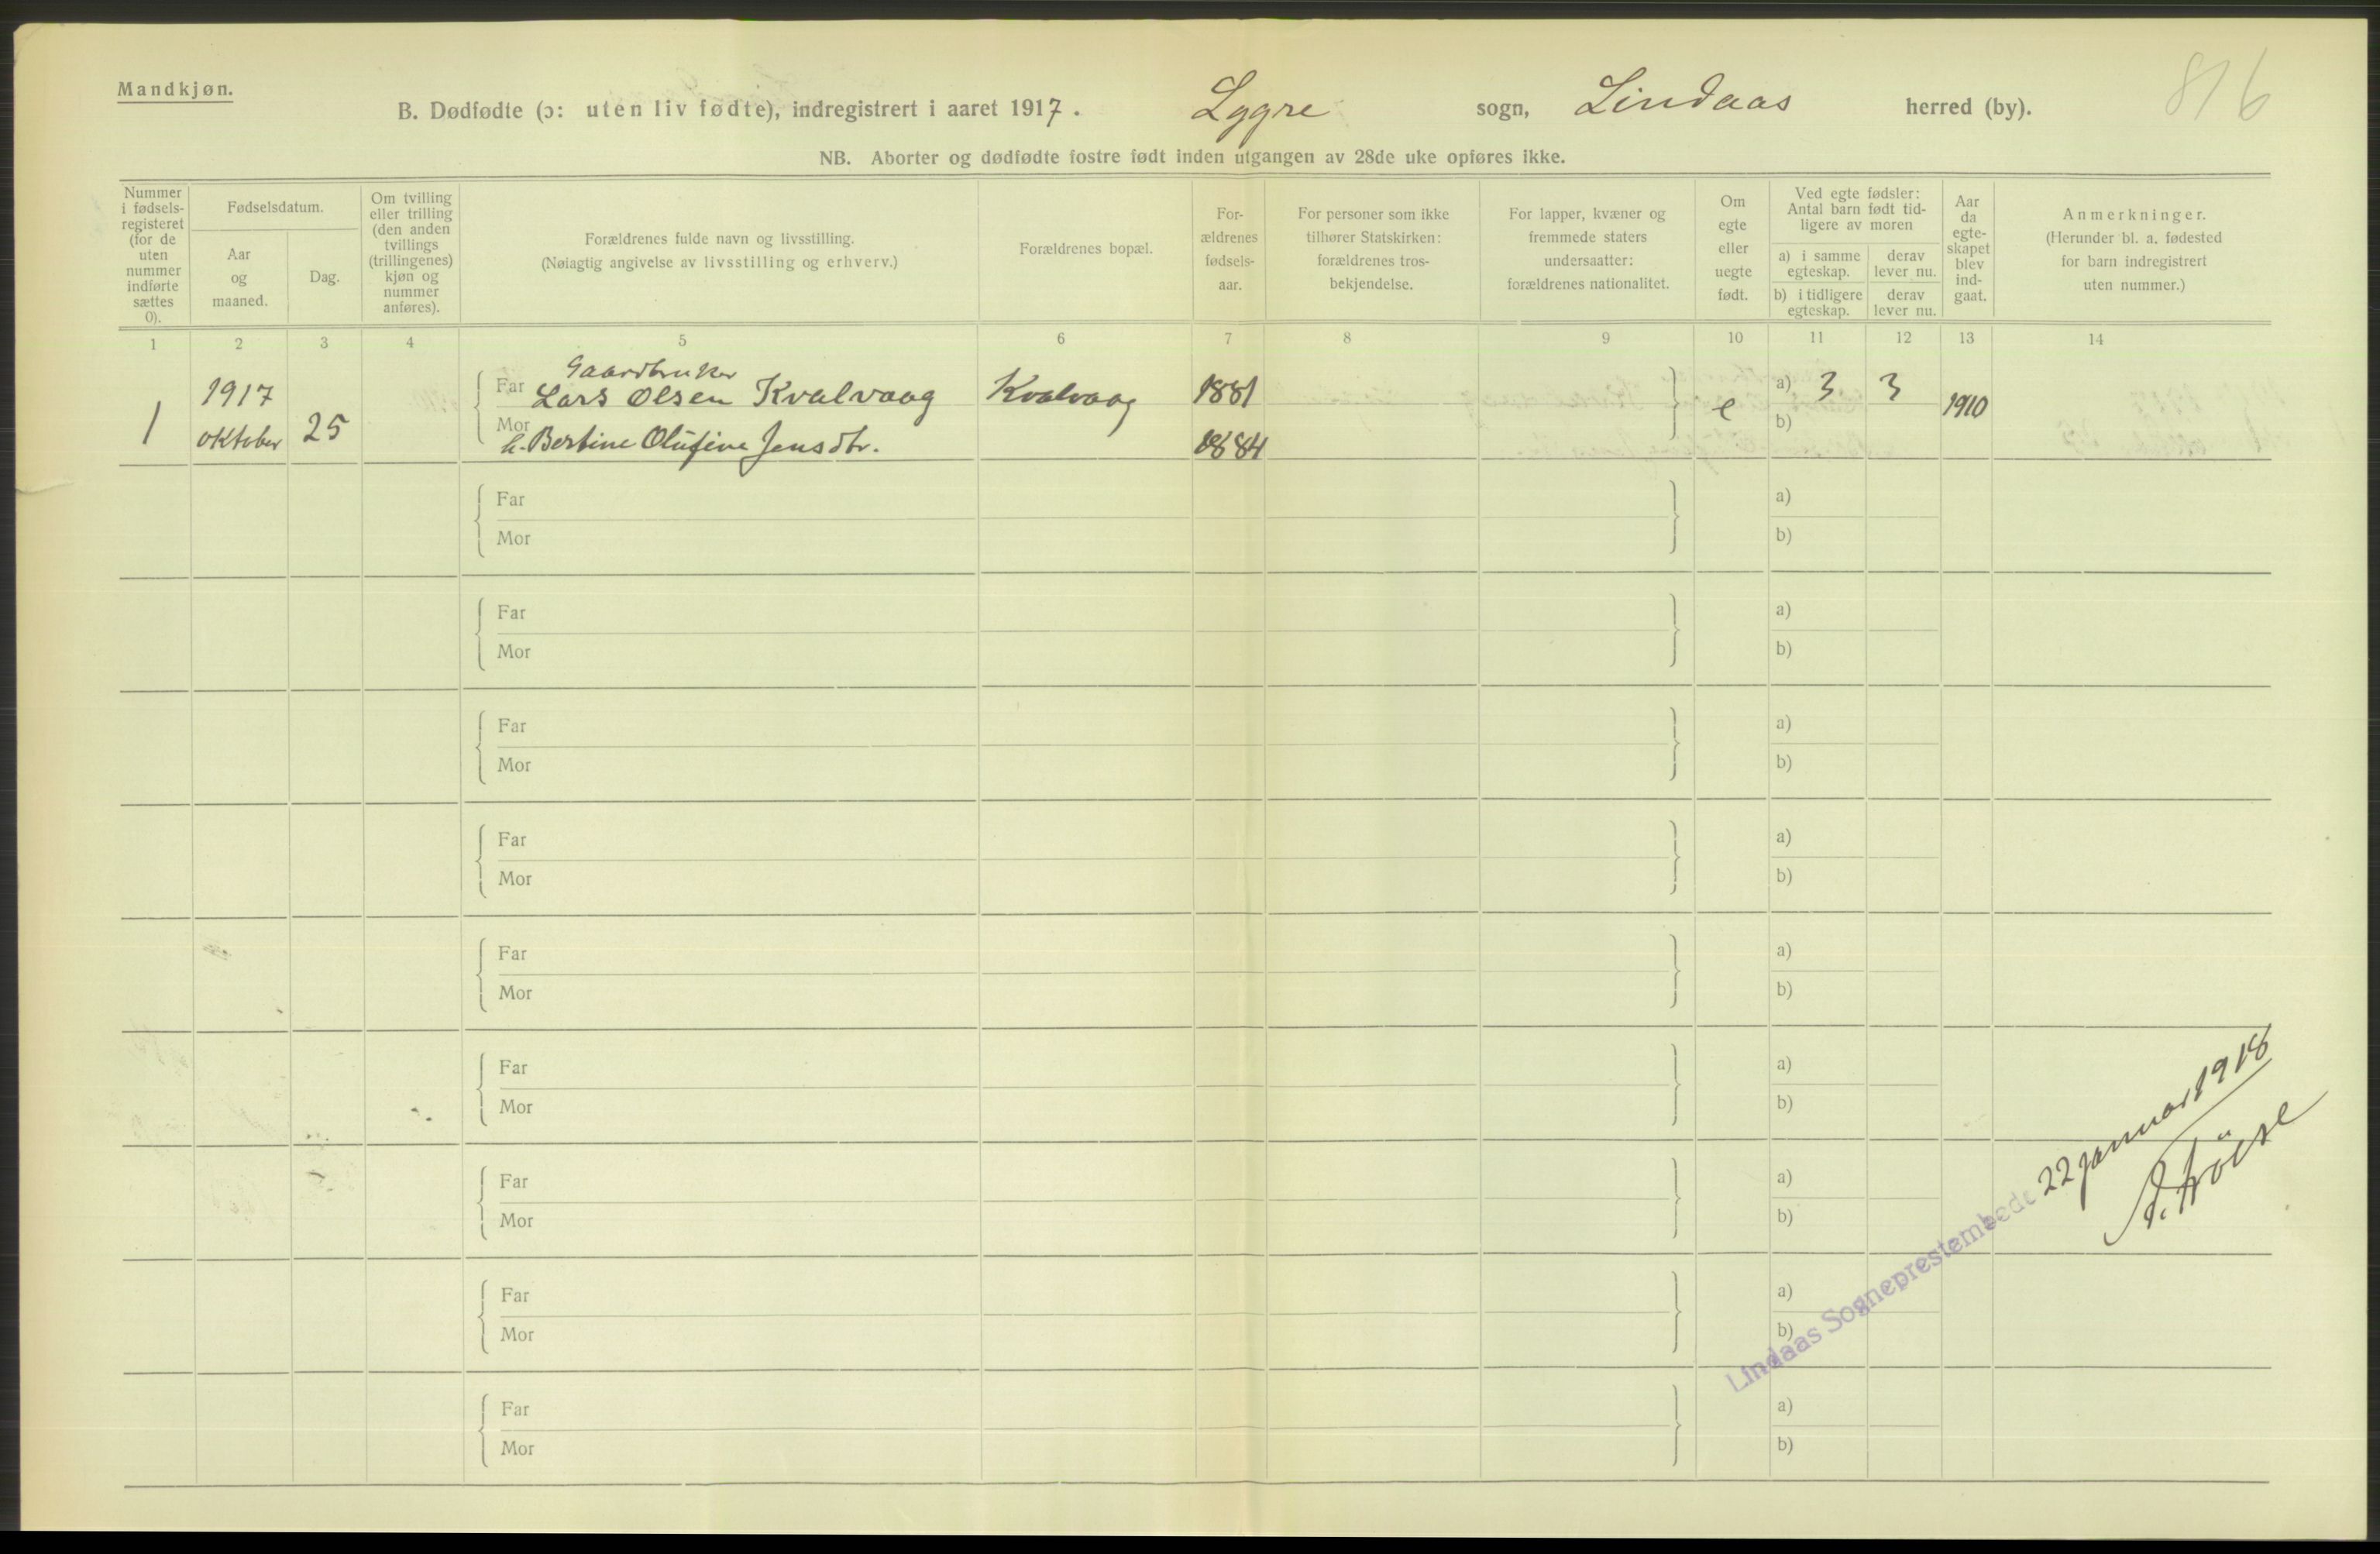 Mandkjøn.
816
B. Dødfødte (ɔ: uten liv fødte), indregistrert i aaret 1917. Lygre sogn, Lindaas herred (by).
NB. Aborter og dødfødte fostre født inden utgangen av 28de uke opføres ikke.
Nummer i fødsels-registeret (for de uten nummer indførte sættes 0).
Fødselsdatum.
Aar og maaned.
Dag.
Om tvilling eller trilling (den anden tvillings (trillingenes) kjøn og nummer anføres).
Forældrenes fulde navn og livsstilling.
(Nøiagtig angivelse av livsstilling og erhverv.)
Forældrenes bopæl.
For-ældrenes fødsels-aar.
For personer som ikke tilhører Statskirken: forældrenes tros-bekjendelse.
For lapper, kvæner og fremmede staters undersaatter: forældrenes nationalitet.
Om egte eller uegte født.
Ved egte fødsler: Antal barn født tid-ligere av moren
a) i samme egteskap.
derav lever nu.
b) i tidligere egteskap.
derav lever nu.
Aar da egte-skapet blev ind-gaat.
Anmerkninger.
(Herunder bl. a. fødested for barn indregistrert uten nummer.)
1 2 3 4 5 6 7 8 9 10 11 12 13 14
Gaardbruker
1 1917 oktober 25 Far Lars Olsen Kvalvaag Kvalvaag 1881 e a) 3 3 1910
Mor h. Bertine Olufine Jensdtr. 1884 b)
Far a)
Mor b)
Far a)
Mor b)
Far a)
Mor b)
Far a)
Mor b)
Far a)
Mor b)
Far a)
Mor b)
Far a)
Mor b)
Far a)
Mor b)
Far a)
Mor b)
Lindaas Sogneprestembede 22 januar 1918